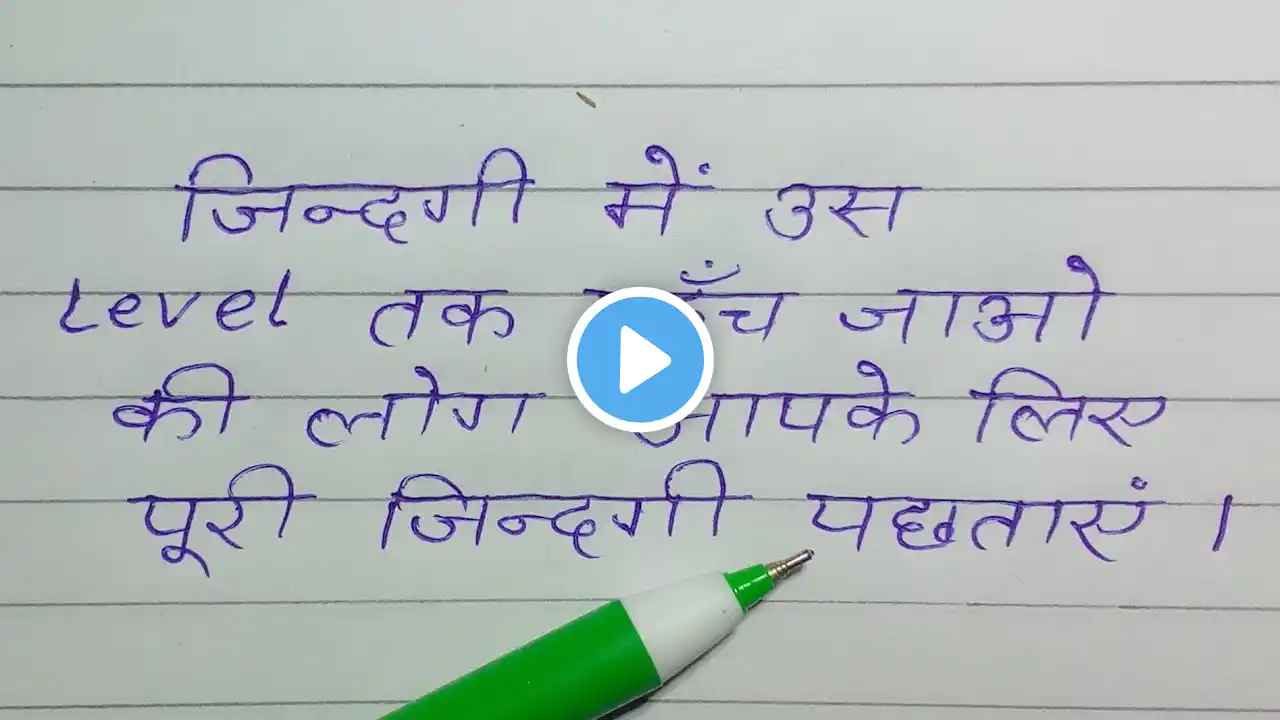 जिन्दगी में उस
Level तक जाओ
की लोग आपके लिए
पूरी जिन्दगी पछताएं ।